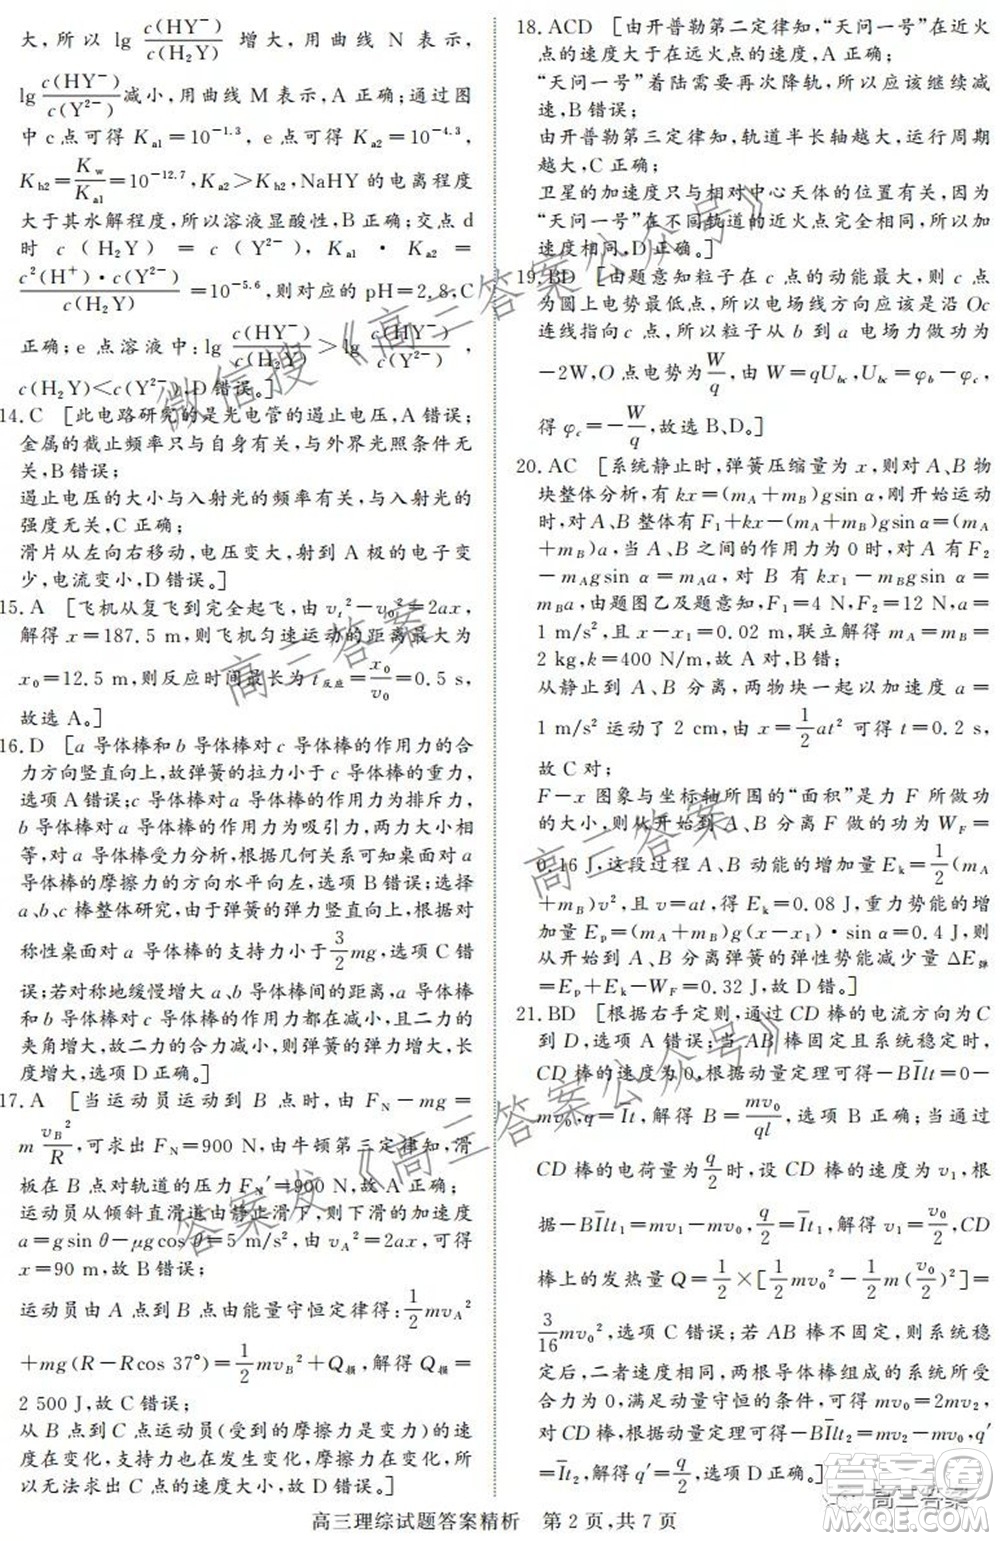 大，所以 lg c(HY⁻)/c(H₂Y) 增大，用曲线 N 表示，
lg c(HY⁻)/c(Y²⁻) 减小，用曲线 M 表示，A 正确；通过图
中 c 点可得 Kₐ₁=10⁻¹·³，e 点可得 Kₐ₂=10⁻⁴·³，
K_h2=K_w/K_a1=10⁻¹²·⁷，故 Kₐ₂>K_h2，NaHY 的电离程度
大于其水解程度，所以溶液显酸性，B 正确；交点 d
时 c(H₂Y) = c(Y²⁻)，Kₐ₁ · Kₐ₂ =
c²(H⁺)·c(Y²⁻)/c(H₂Y) =10⁻⁵·⁶，则对应的 pH=2.8，C
正确；e 点溶液中：lg c(HY⁻)/c(H₂Y) > lg c(HY⁻)/c(Y²⁻)，
c(H₂Y)<c(Y²⁻)，D 错误。]
14. C [此电路研究的是光电管的遏止电压，A 错误；
金属的截止频率只与自身有关，与外界光照条件无
关，B 错误；
遏止电压的大小与入射光的频率有关，与入射光的
强度无关，C 正确；
滑片从左向右移动，电压变大，射到 A 极的电子变
少，电流变小，D 错误。]
15. A [飞机从复飞到完全起飞，由 v₁²－v₀²=2ax，
解得 x=187.5 m，则飞机匀速运动的距离最大为
x₀=12.5 m，则反应时间最长为 t反应=x₀/v₀=0.5 s，
故选 A。]
16. D [a 导体棒和 b 导体棒对 c 导体棒的作用力的合
力方向竖直向上，故弹簧的拉力小于 c 导体棒的重力，
选项 A 错误；c 导体棒对 a 导体棒的作用力为排斥力，
b 导体棒对 a 导体棒的作用力为吸引力，两力大小相
等，对 a 导体棒受力分析，根据几何关系可知桌面对 a
导体棒的摩擦力的方向水平向左，选项 B 错误；选择
a、b、c 棒整体研究，由于弹簧的弹力竖直向上，根据对
称性桌面对 a 导体棒的支持力小于 3/2 mg，选项 C 错
误；若对称地缓慢增大 a、b 导体棒间的距离，a 导体棒
和 b 导体棒对 c 导体棒的作用力都在减小，且二力的
夹角增大，故二力的合力减小，则弹簧的弹力增大，弹
簧长度增大，选项 D 正确。]
17. A [当运动员运动到 B 点时，由 F_N－mg=
m v_B²/R，可求出 F_N=900 N，由牛顿第三定律知，滑
板在 B 点对轨道的压力 F_N′=900 N，故 A 正确；
运动员从倾斜直滑道由静止滑下，则下滑的加速度
a=gsin θ－μgcos θ=5 m/s²，由 v_A²=2ax，可得
x=90 m，故 B 错误；
运动员由 A 点到 B 点由能量守恒定律得：1/2 mv_A²
+mg(R－Rcos 37°)=1/2 mv_B²+Q损，解得 Q损=
2 500 J，故 C 错误；
从 B 点到 C 点运动员(受到的摩擦力是变力)的速
度在变化，支持力也在发生变化，摩擦力在变化，所
以无法求出 C 点的速度大小，故 D 错误。]
18. ACD [由开普勒第二定律知，“天问一号”在近火
点的速度大于在远火点的速度，A 正确；
“天问一号”着陆需要再次降轨，所以应该继续减
速，B 错误；
由开普勒第三定律知，轨道半长轴越大，运行周期
越大，C 正确；
卫星的加速度只与相对中心天体的位置有关，因为
“天问一号”在不同轨道的近火点完全相同，所以加
速度相同，D 正确。]
19. BD [由题意知粒子在 c 点的动能最大，则 c 点
为圆上电势最低点，所以电场线方向应该是沿 Oc
连线指向 c 点，所以粒子从 b 到 a 电场力做功为
－2W，O 点电势为 W/q，由 W=qU_bc，U_bc=φ_b－φ_c，
得 φ_c=－W/q，故选 B、D。]
20. AC [系统静止时，弹簧压缩量为 x，则对 A、B 物
块整体分析，有 kx=(m_A+m_B)gsin α，刚开始运动
时，对 A、B 整体有 F₁+kx－(m_A+m_B)gsin α=(m_A
+m_B)a，当 A、B 之间的作用力为 0 时，对 A 有 F₂
－m_Agsin α=m_Aa，对 B 有 kx₁－m_Bgsin α=
m_Ba，由题图乙及题意知，F₁=4 N，F₂=12 N，a=
1 m/s²，且 x－x₁=0.02 m，联立解得 m_A=m_B=
2 kg，k=400 N/m，故 A 对，B 错；
从静止到 A、B 分离，两物块一起以加速度 a=
1 m/s² 运动了 2 cm，由 x=1/2 at² 可得 t=0.2 s，
故 C 对；
F－x 图象与坐标轴所围的“面积”是力 F 所做功
的大小，则从开始到 A、B 分离 F 做的功为 W_F=
0.16 J，这段过程 A、B 动能的增加量 E_k=1/2(m_A
+m_B)v²，且 v=at，得 E_k=0.08 J，重力势能的增
加量 E_p=(m_A+m_B)g(x－x₁)sin α=0.4 J，则
从开始到 A、B 分离弹簧的弹性势能减少量 ΔE弹
=E_p+E_k－W_F=0.32 J，故 D 错。]
21. BD [根据右手定则，通过 CD 棒的电流方向为 C
到 D，选项 A 错误；当 AB 棒固定且系统稳定时，
CD 棒的速度为 0，根据动量定理可得－BI̅lt=0－
mv₀，q=I̅t，解得 B=mv₀/ql，选项 B 正确；当通过
CD 棒的电荷量为 q/2 时，设 CD 棒的速度为 v₁，根
据－BI̅lt₁=mv₁－mv₀，q/2=I̅t₁，解得 v₁=v₀/2，CD
棒上的发热量 Q=1/2×[1/2 mv₀²－1/2 m(v₀/2)²]=
3/16 mv₀²，选项 C 错误；若 AB 棒不固定，则系统稳
定后，二者速度相同，两根导体棒组成的系统所受
合力为 0，满足动量守恒的条件，可得 mv₀=2mv₂，
对 CD 棒，根据动量定理可得－BI̅lt₂=mv₂－mv₀，q′
=I̅t₂，解得 q′=q/2，选项 D 正确。]
高三理综试题答案精析 第 2 页，共 7 页
微信搜《高三答案公众号》
高三答案
高三答案
答案发《高三答案公众号》
高三答案
答案圈
MXQE.COM